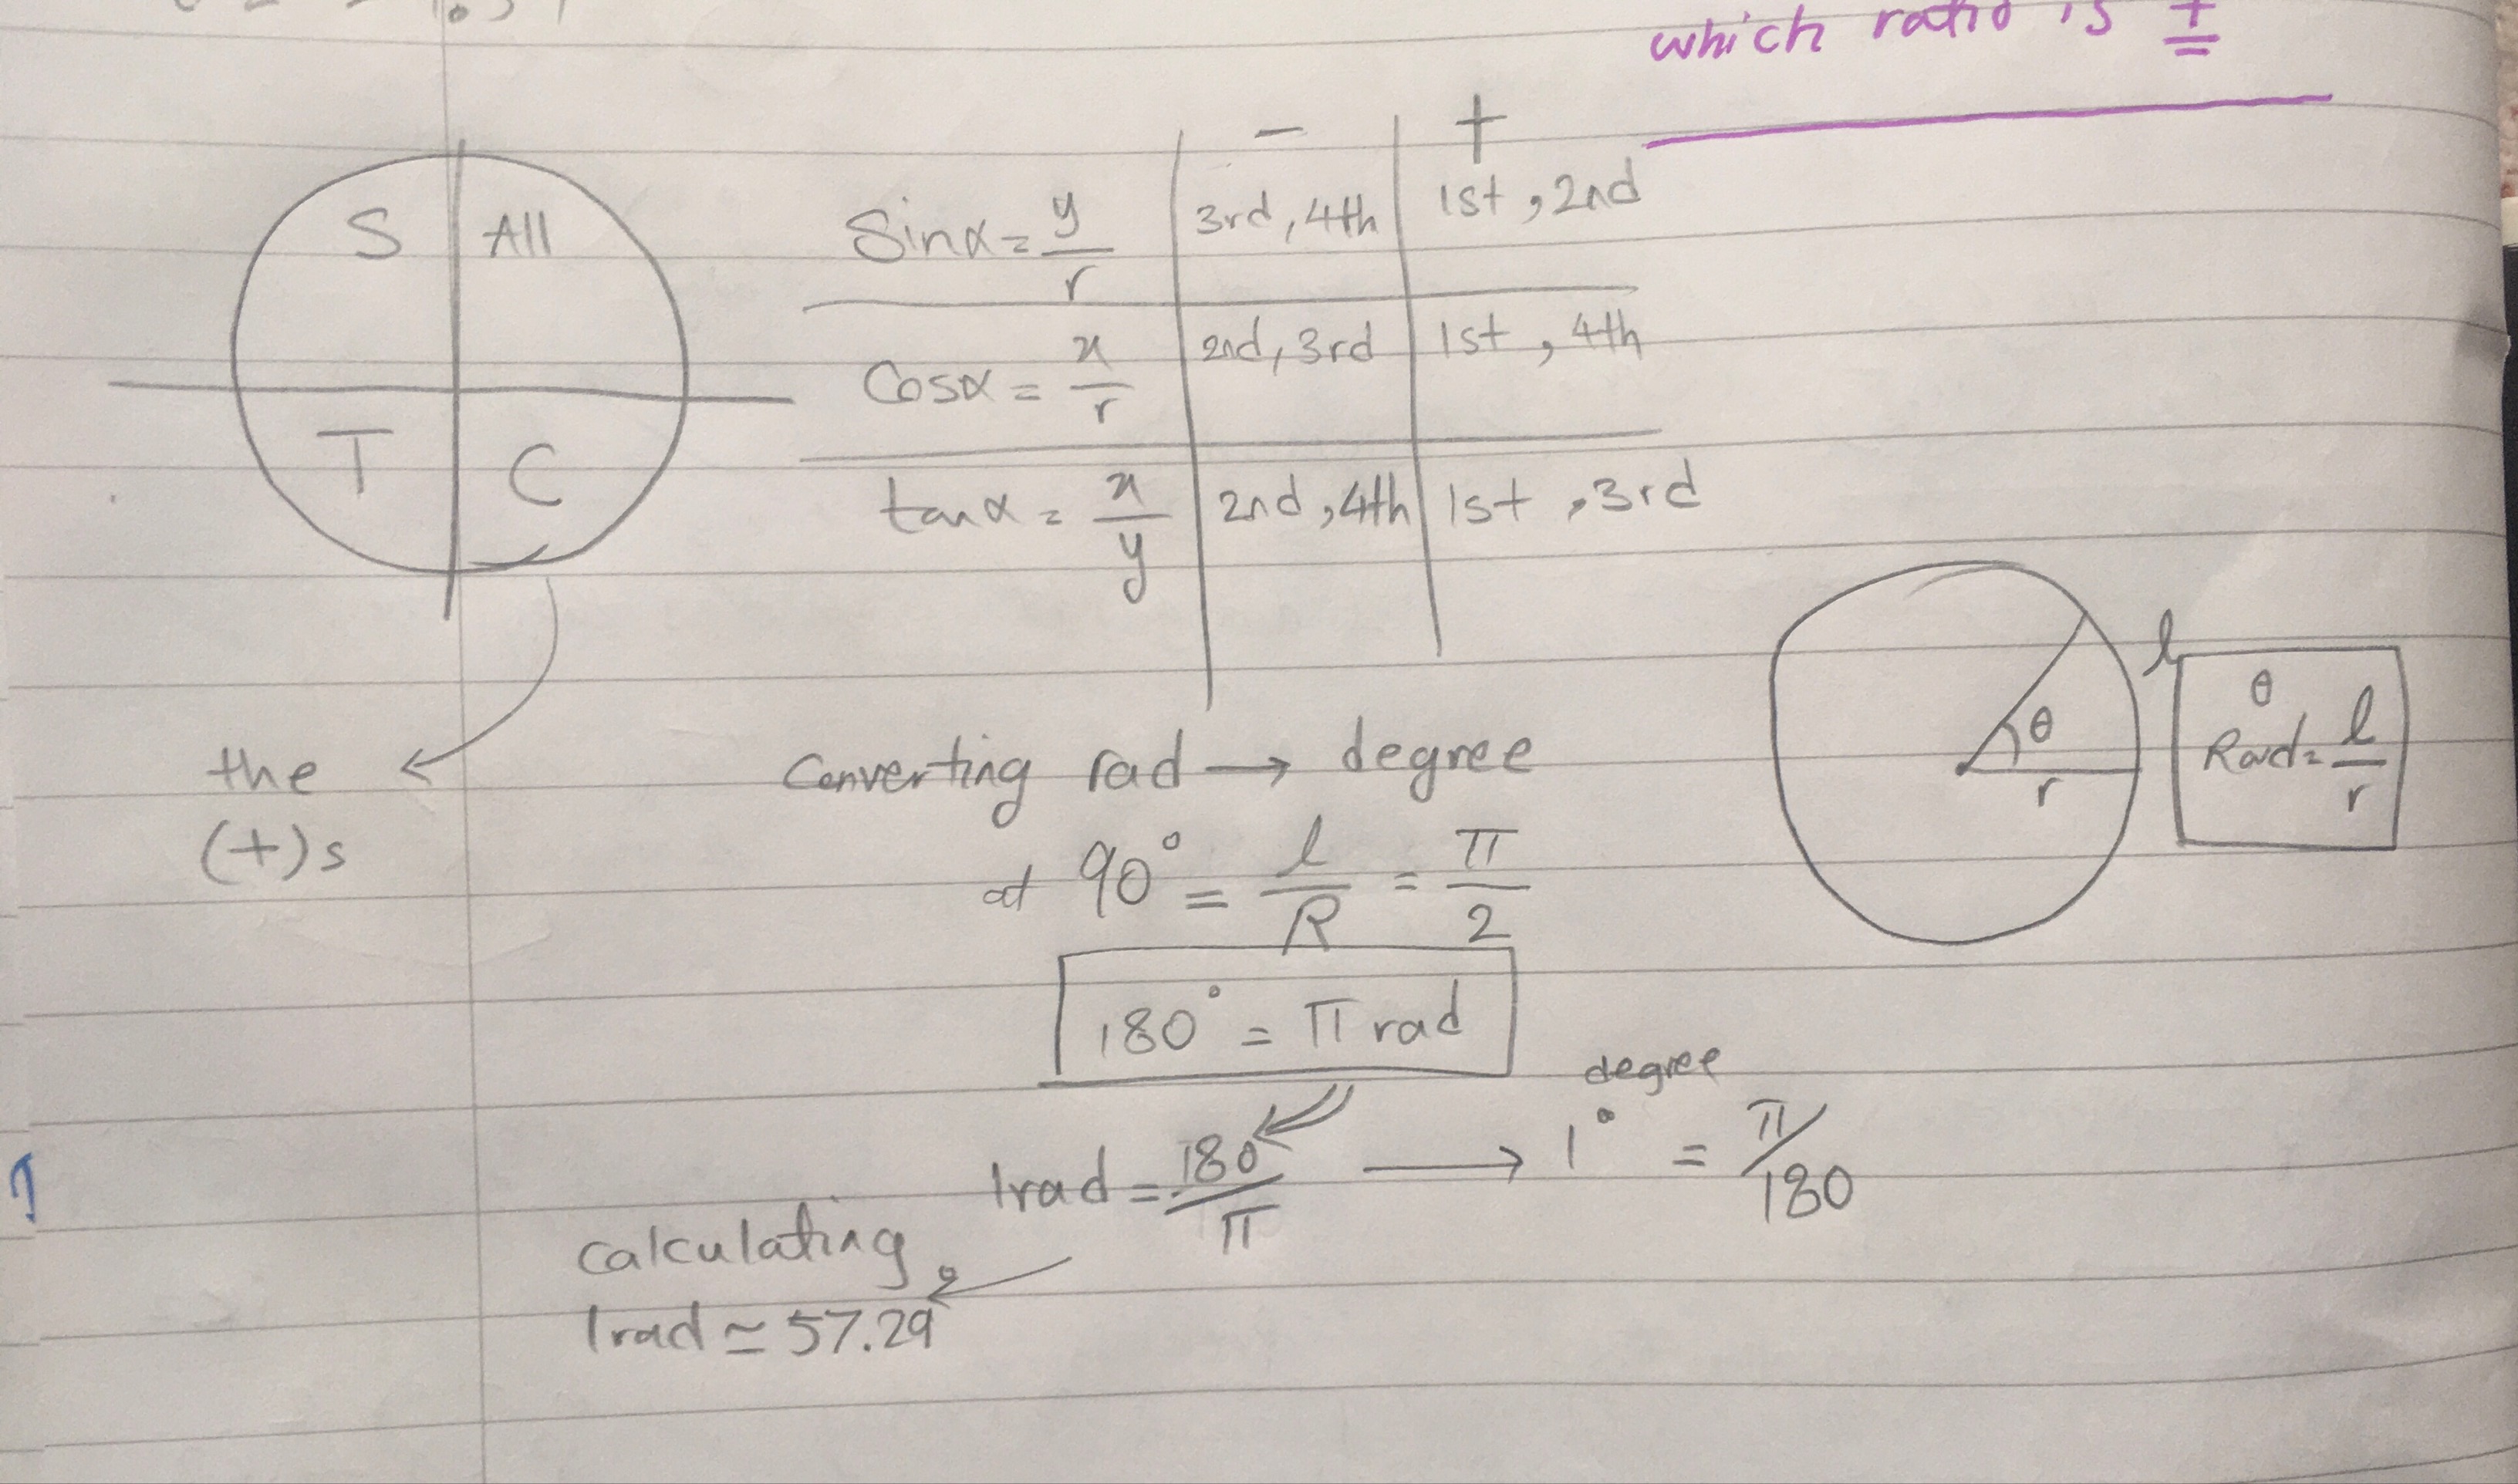 which ratio is +
S All
T C
the
(+)s
- +
Sinα = y/r 3rd, 4th 1st, 2nd
Cosα = x/r 2nd, 3rd 1st, 4th
tanα = x/y 2nd, 4th 1st, 3rd
l
θ
r
θ
Rad = l/r
Converting rad → degree
at 90° = l/R = π/2
180° = π rad
degree
1rad = 180/π → 1° = π/180
calculating
1rad ≃ 57.29°